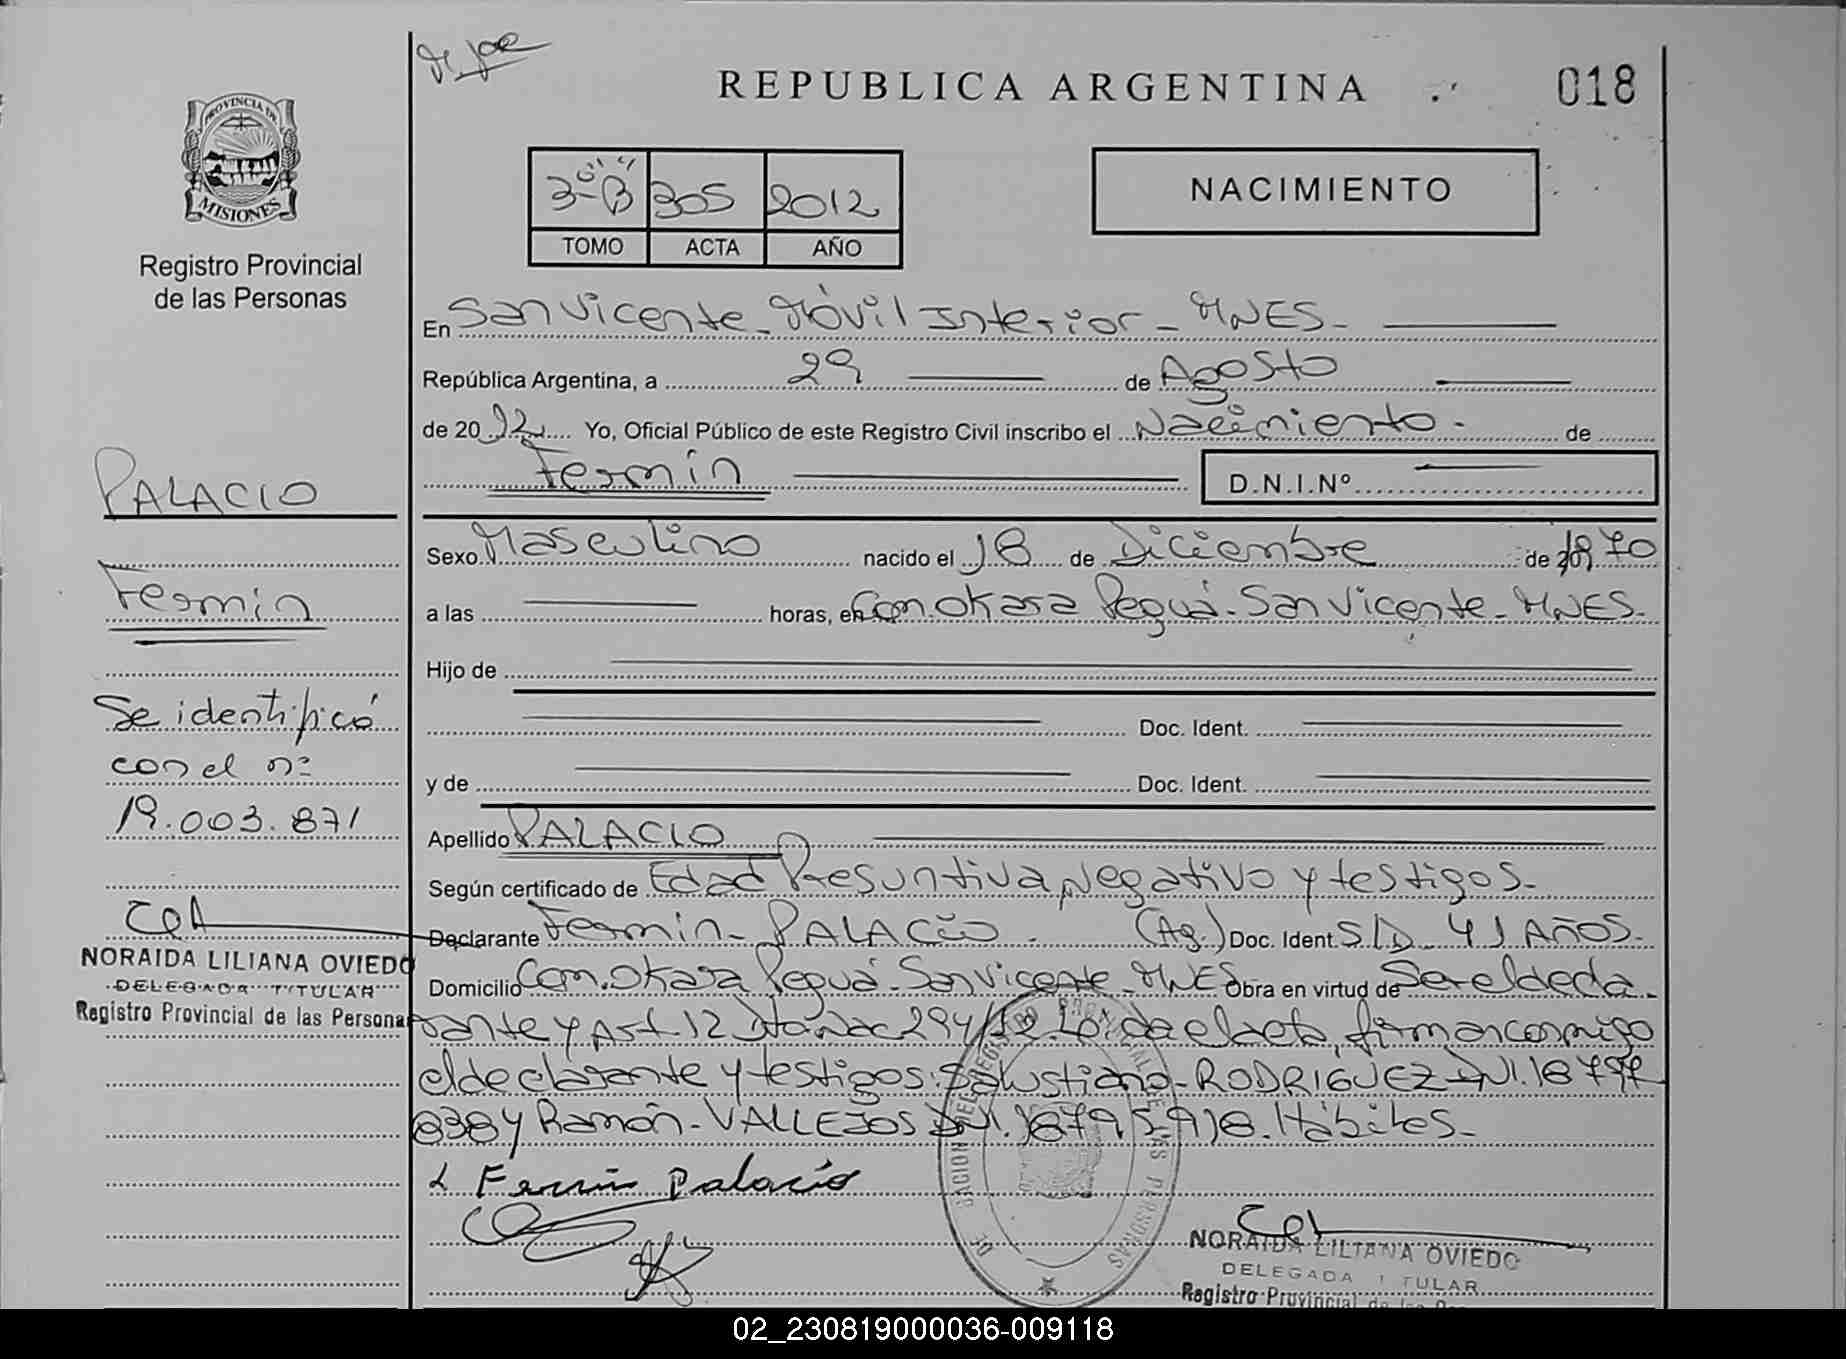 REPUBLICA ARGENTINA
018
PROVINCIA DE
MISIONES
Registro Provincial
de las Personas
3º B 305 2012
TOMO ACTA AÑO
NACIMIENTO
En San Vicente - Móvil Interior - MNES -
República Argentina, a 29 de Agosto
de 2012 Yo, Oficial Público de este Registro Civil inscribo el Nacimiento - de
Fermin D.N.I.Nº
PALACIO
Fermin
Se identificó
con el nº
19.003.871
NORAIDA LILIANA OVIEDO
DELEGADA TITULAR
Registro Provincial de las Persona
Sexo Masculino nacido el 18 de Diciembre de 1970
a las horas, en Com. Okara Peguá - San Vicente - MNES -
Hijo de
Doc. Ident.
y de Doc. Ident.
Apellido PALACIO
Según certificado de Edad Presuntiva, Negativo y testigos -
Declarante Fermin - PALACIO . (Ag.) Doc. Ident. S/D - 41 AÑOS -
Domicilio Com. Okara Peguá - San Vicente - MNES Obra en virtud de Ser el decla
rante y Art. 12 294/12. Leída el acta, firman conmigo
el declarante y testigos: Salustiano - RODRIGUEZ DNI. 18797
838 y Ramón - VALLEJOS DNI. 18795918. Hábiles -
Fermin Palacio
NORAIDA LILIANA OVIEDO
DELEGADA TITULAR
Registro Provincial de las
02_230819000036-009118